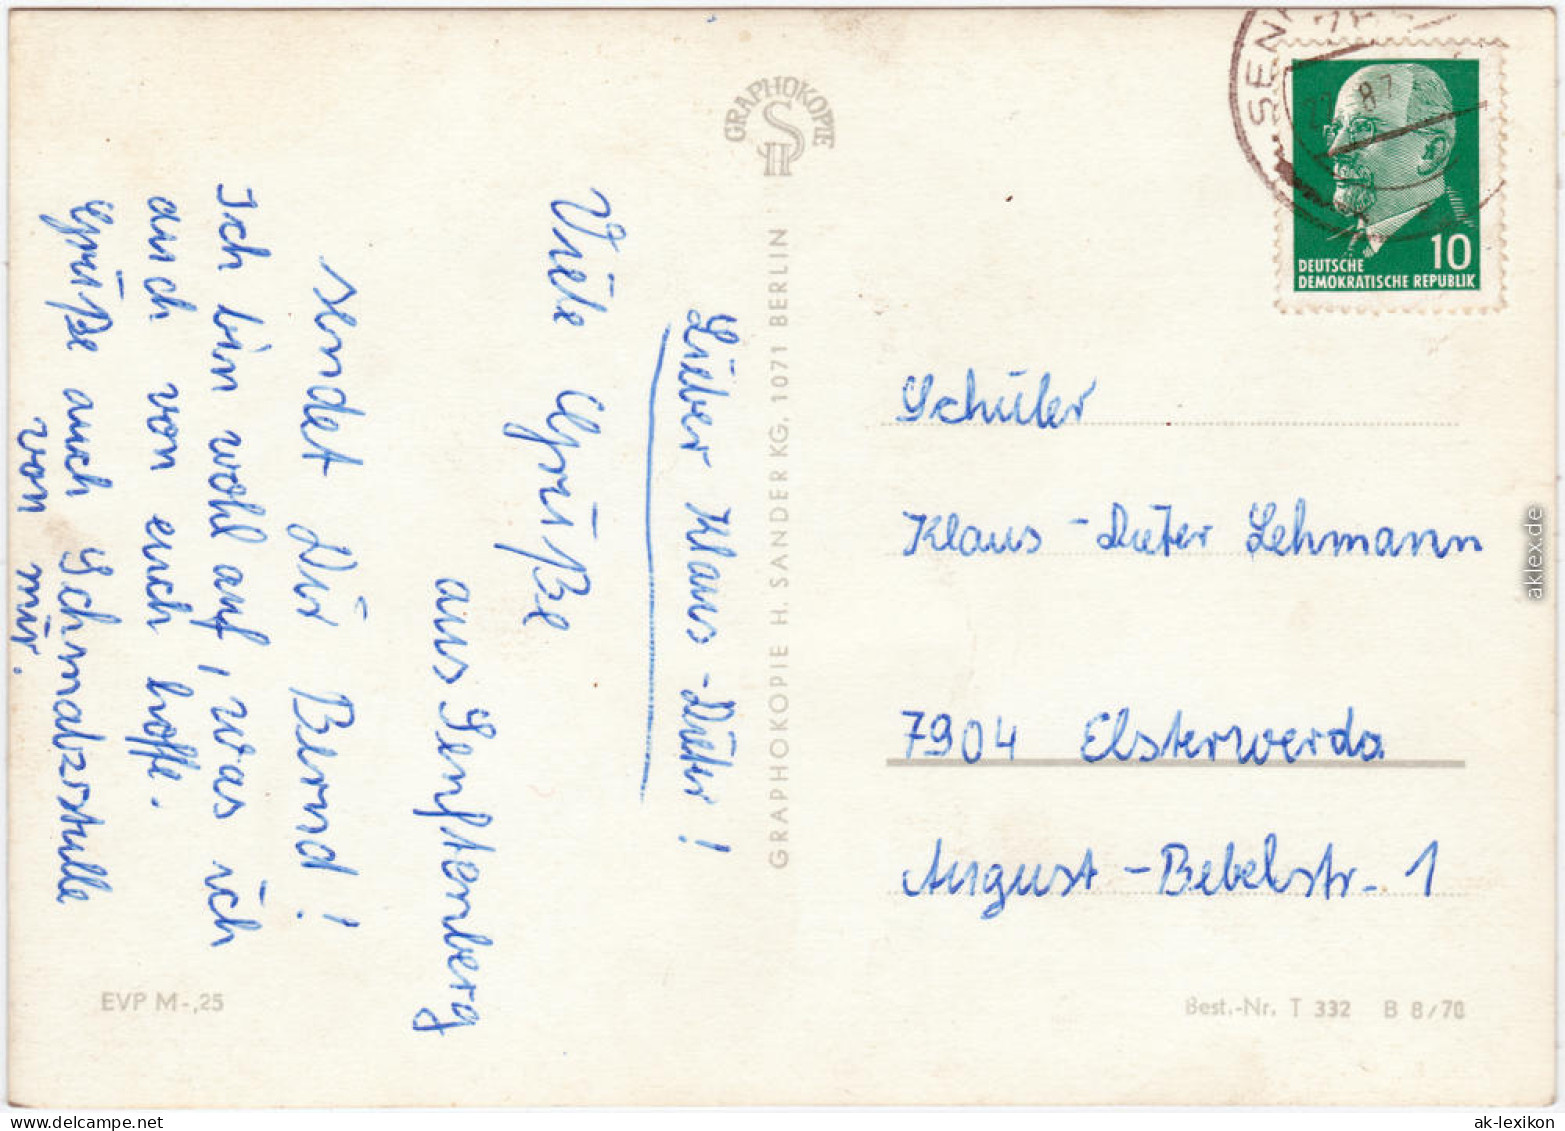 Lieber Klaus-Dieter!
Viele Grüße
aus Senftenberg
sendet Dir Bernd!
Ich bin wohl auf, was ich
auch von euch hoffe.
Grüße auch Schmalzstulle
von mir.
EVP M-,25
GRAPHOKOPIE
HS
GRAPHOKOPIE H. SANDER KG, 1071 BERLIN
SEN
87
10
DEUTSCHE
DEMOKRATISCHE REPUBLIK
Schüler
Klaus-Dieter Lehmann
7904 Elsterwerda
August-Bebelstr. 1
Best.-Nr. T 332 B 8/70
aklex.de
ak-lexikon